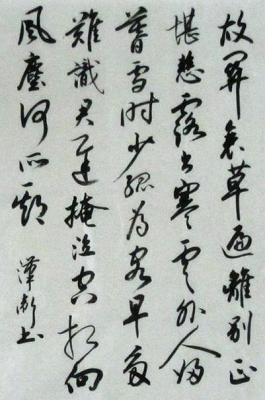 故關衰草遍離別正
堪悲露出寒雲外人歸
暮雪时少孤为客早多
難識君遲掩泣空相向
風塵何所期